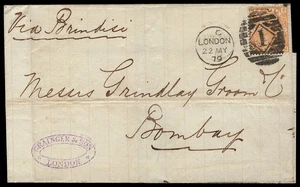 Via Brindisi
C
LONDON
22 MY
79
1
Messrs Grindlay Groom & Co
Bombay
GRAINGER & SON
LONDON